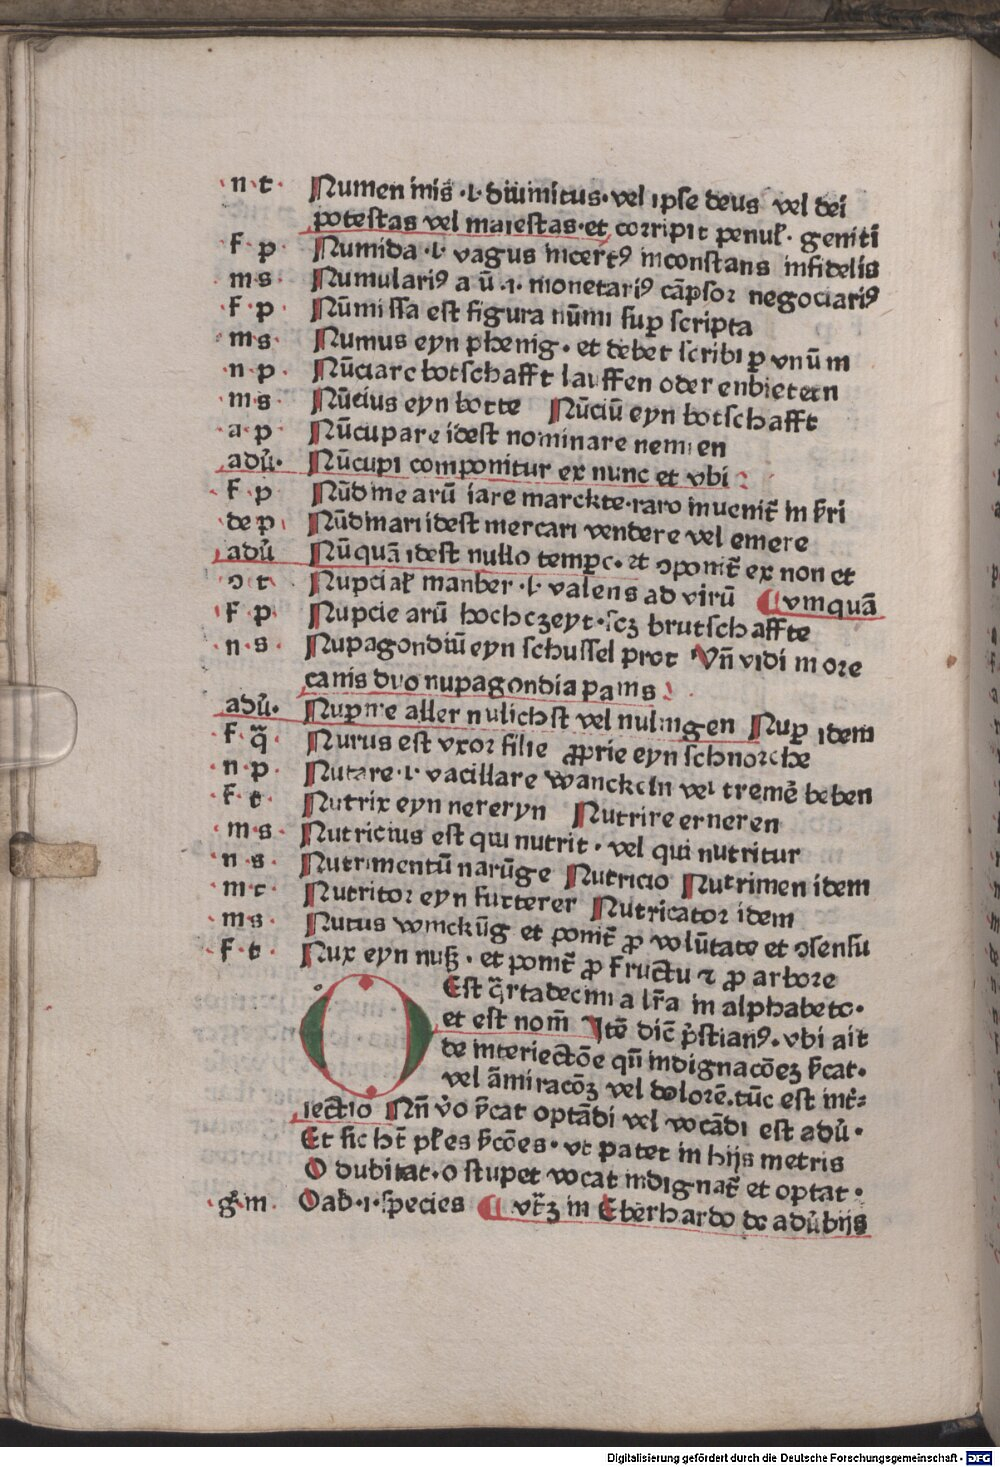 ·n·t· Numen inis ·l· diuinitus· vel ipse deus vel dei
potestas vel maiestas·et corripit penul̄· geniti
f·p· Numida ·l· vagus incertꝰ inconstans infidelis
m·s· Numulariꝰ a ū ·i· monetariꝰ cāpsor negociariꝰ
f·p· Nūmissa est figura nūmi suꝑ scripta
m·s· Numus eyn phenig· et debet scribi ꝑ vnū m
n·p· Nūciare botschafft lauffen oder enbietern
m·s· Nūcius eyn botte Nūciū eyn botschafft
a·p· Nūcupare idest nominare nennen
adū· Nūcupi componitur ex nunc et vbi
f·p· Nūdine arū iare marckte·raro inuenit̄ in s̄ri
de p· Nūdinari idest mercari vendere vel emere
adū Nūquā idest nullo tempꝑe· et ꝯponit̄ ex non et
ꝯ t· Nupcial̄ manber ·l· valens ad virū vmquā
f·p· Nupcie arū hochczeyt·scꝫ brutschaffte
n·s· Nupagondiū eyn schussel prot Vn̄ vidi more
canis duo nupagondia panis
adū· Nuꝑrire aller nulichst vel nulingen Nuꝑ idem
f·q̄· Nurus est vxor filie ꝓprie eyn schnorche
n·p· Nutare·l· vacillare wanckeln vel tremē beben
f·t· Nutrix eyn nereryn Nutrire erneren
m·s· Nutricius est qui nutrit · vel qui nutritur
n·s· Nutrimentū narūge Nutricio Nutrimen idem
m·t· Nutritor eyn futterer Nutricator idem
m·s· Nutus winckūg et ponit̄ ꝓ volūtate et ꝯsensu
·f·t· Nux eyn nuß · et ponit̄ ꝓ fructu ⁊ ꝓ arbore
O Est q̄rtadecima lr̄a in alphabeto·
et est nom̄ Itē dic̄ p̄stianꝰ· vbi ait
de interiectōe qn̄ indignacōeꝫ s̄cat·
vel āmiracōꝫ vel dolorē·tūc est int̄:
iectio Nn̄ v̊o s̄cat optādi vel vocādi est adū·
Et sic ht̄ pl̄es s̄cōes· vt patet in hijs metris
O dubitat·o stupet vocat indignat̄ et optat·
·g̊·m· Oab·i·species vt̄ꝫ in Eberhardo de adūbijs
Digitalisierung gefördert durch die Deutsche Forschungsgemeinschaft - DFG